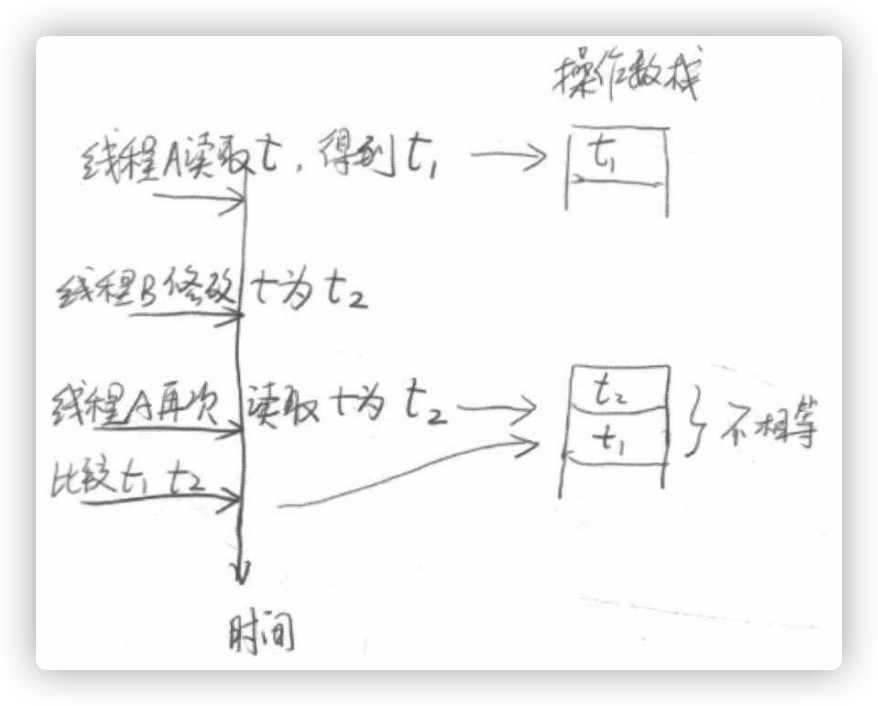 操作数栈
线程A读取t，得到t₁
t₁
线程B修改 t为t₂
线程A再次 读取t为t₂
t₂
t₁
不相等
比较t₁ t₂
时间